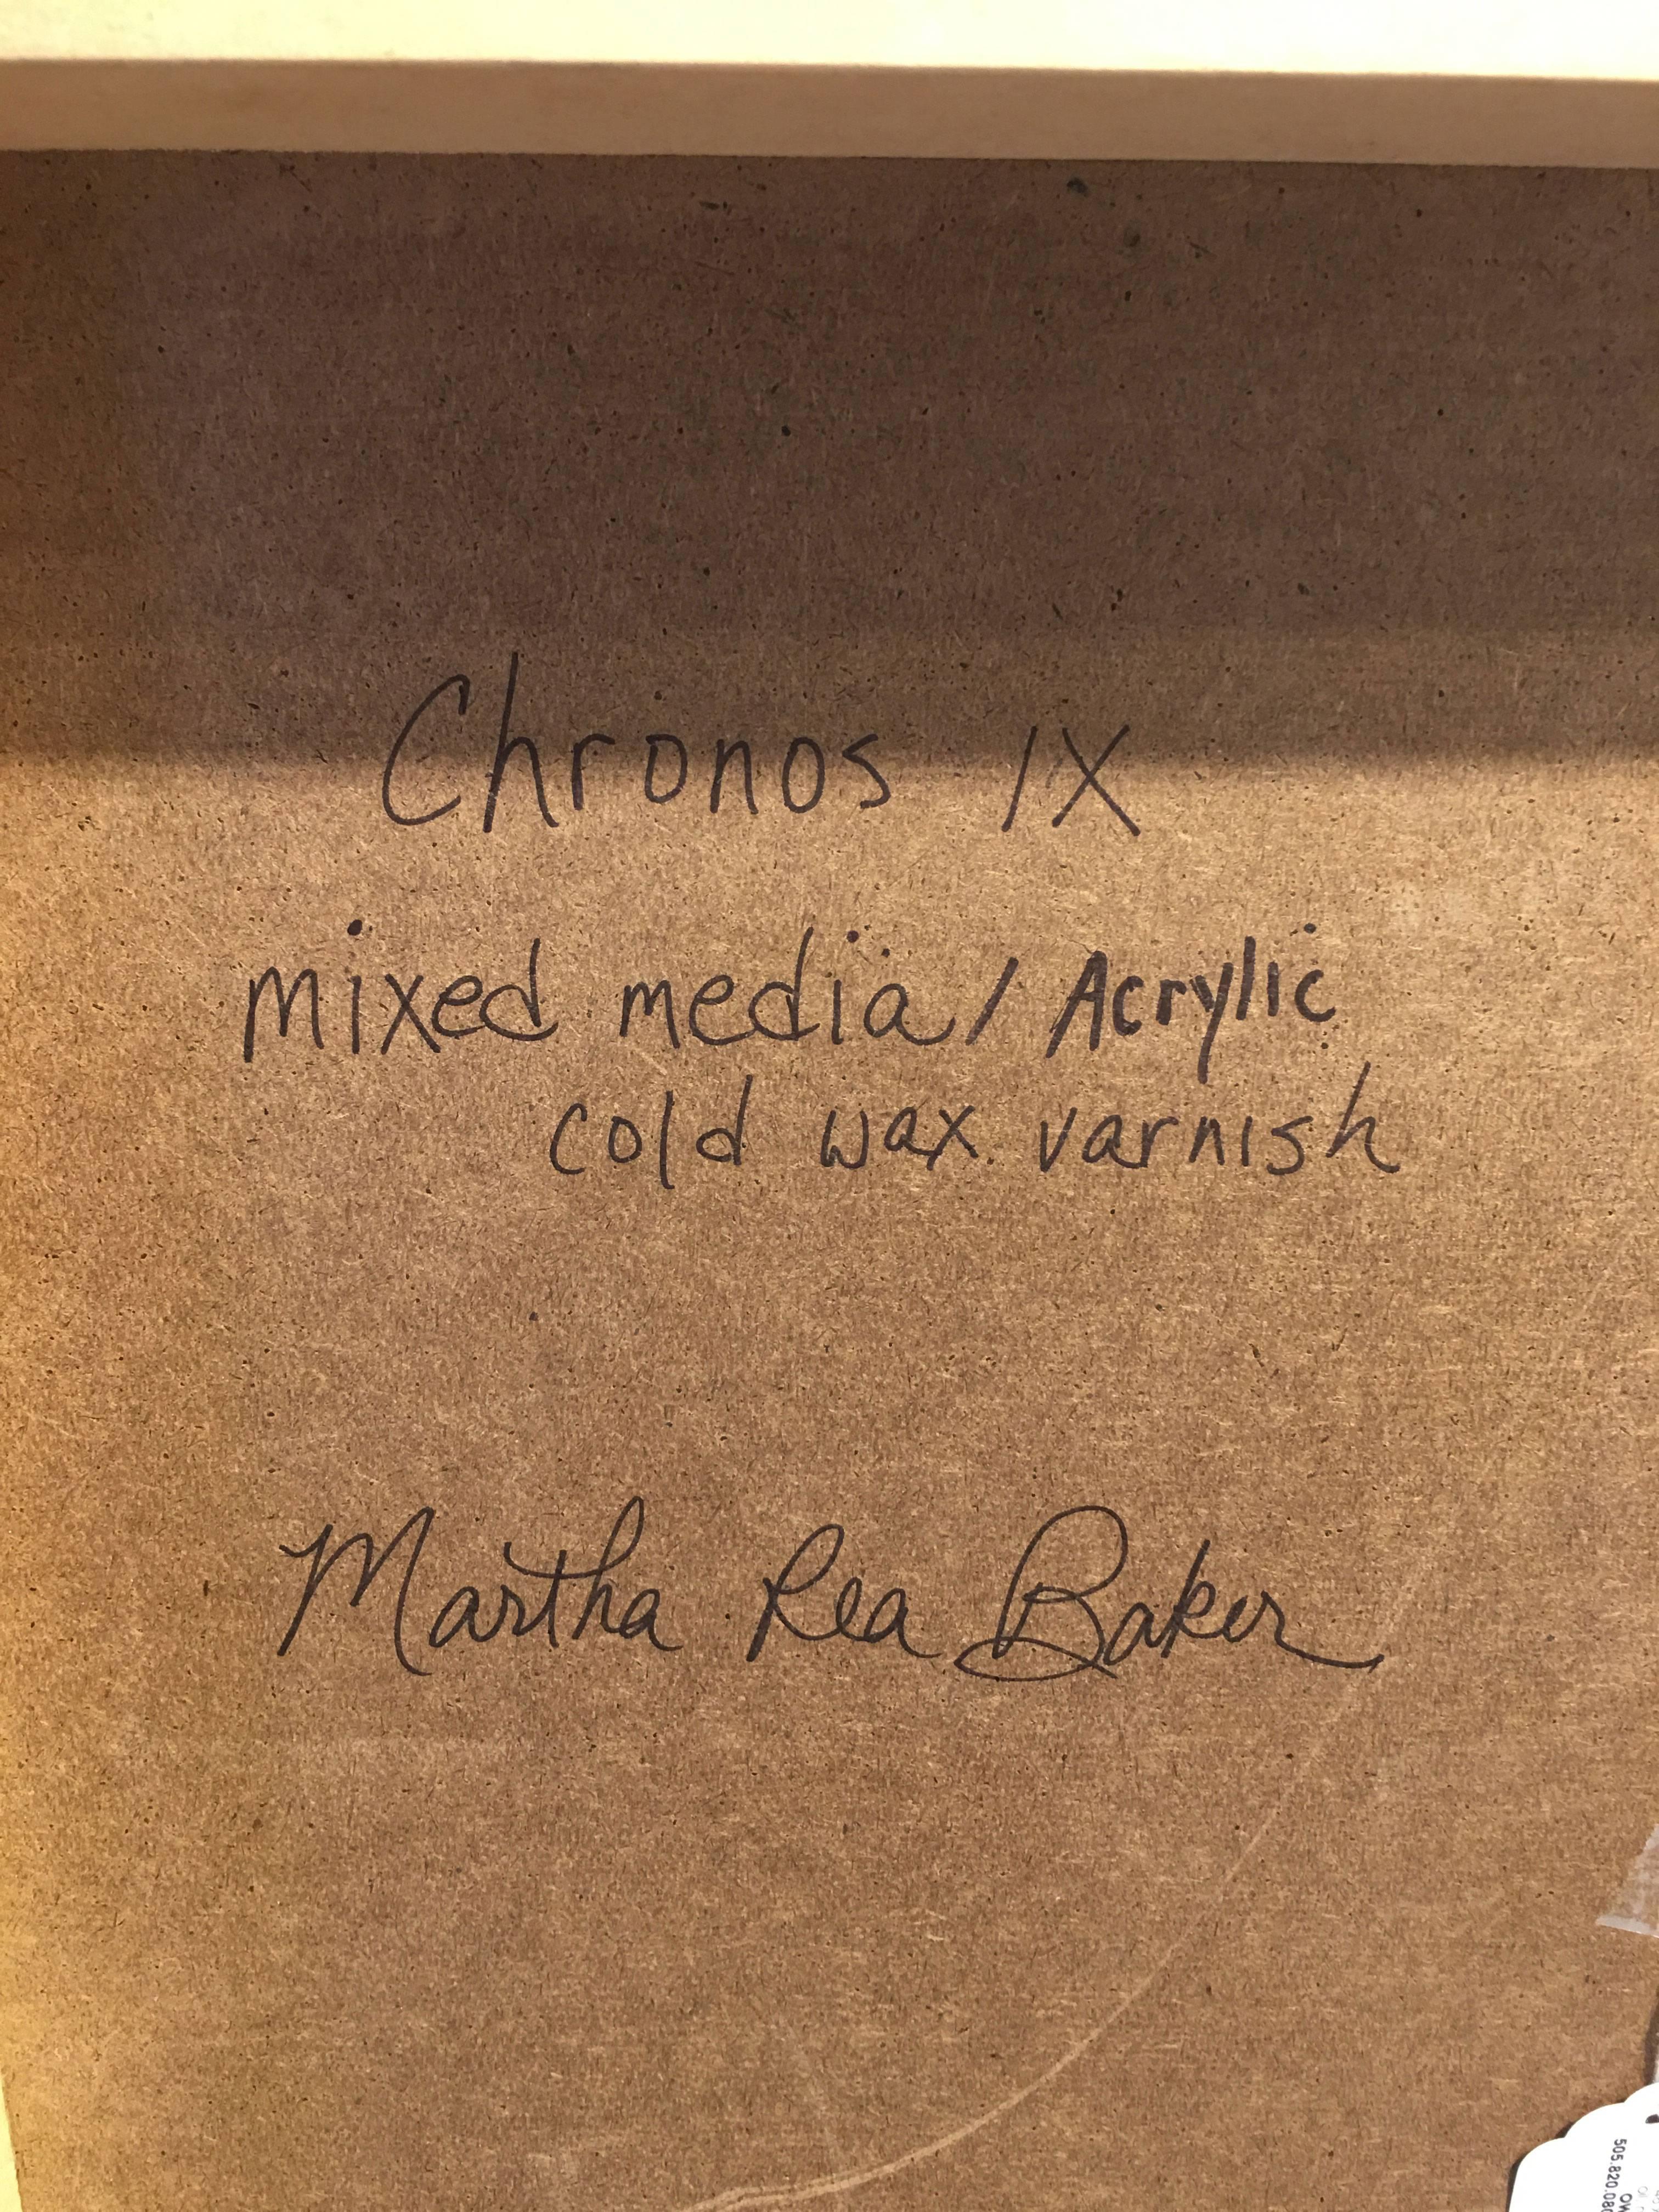 Chronos IX
mixed media / Acrylic
cold wax varnish
Martha Rea Baker